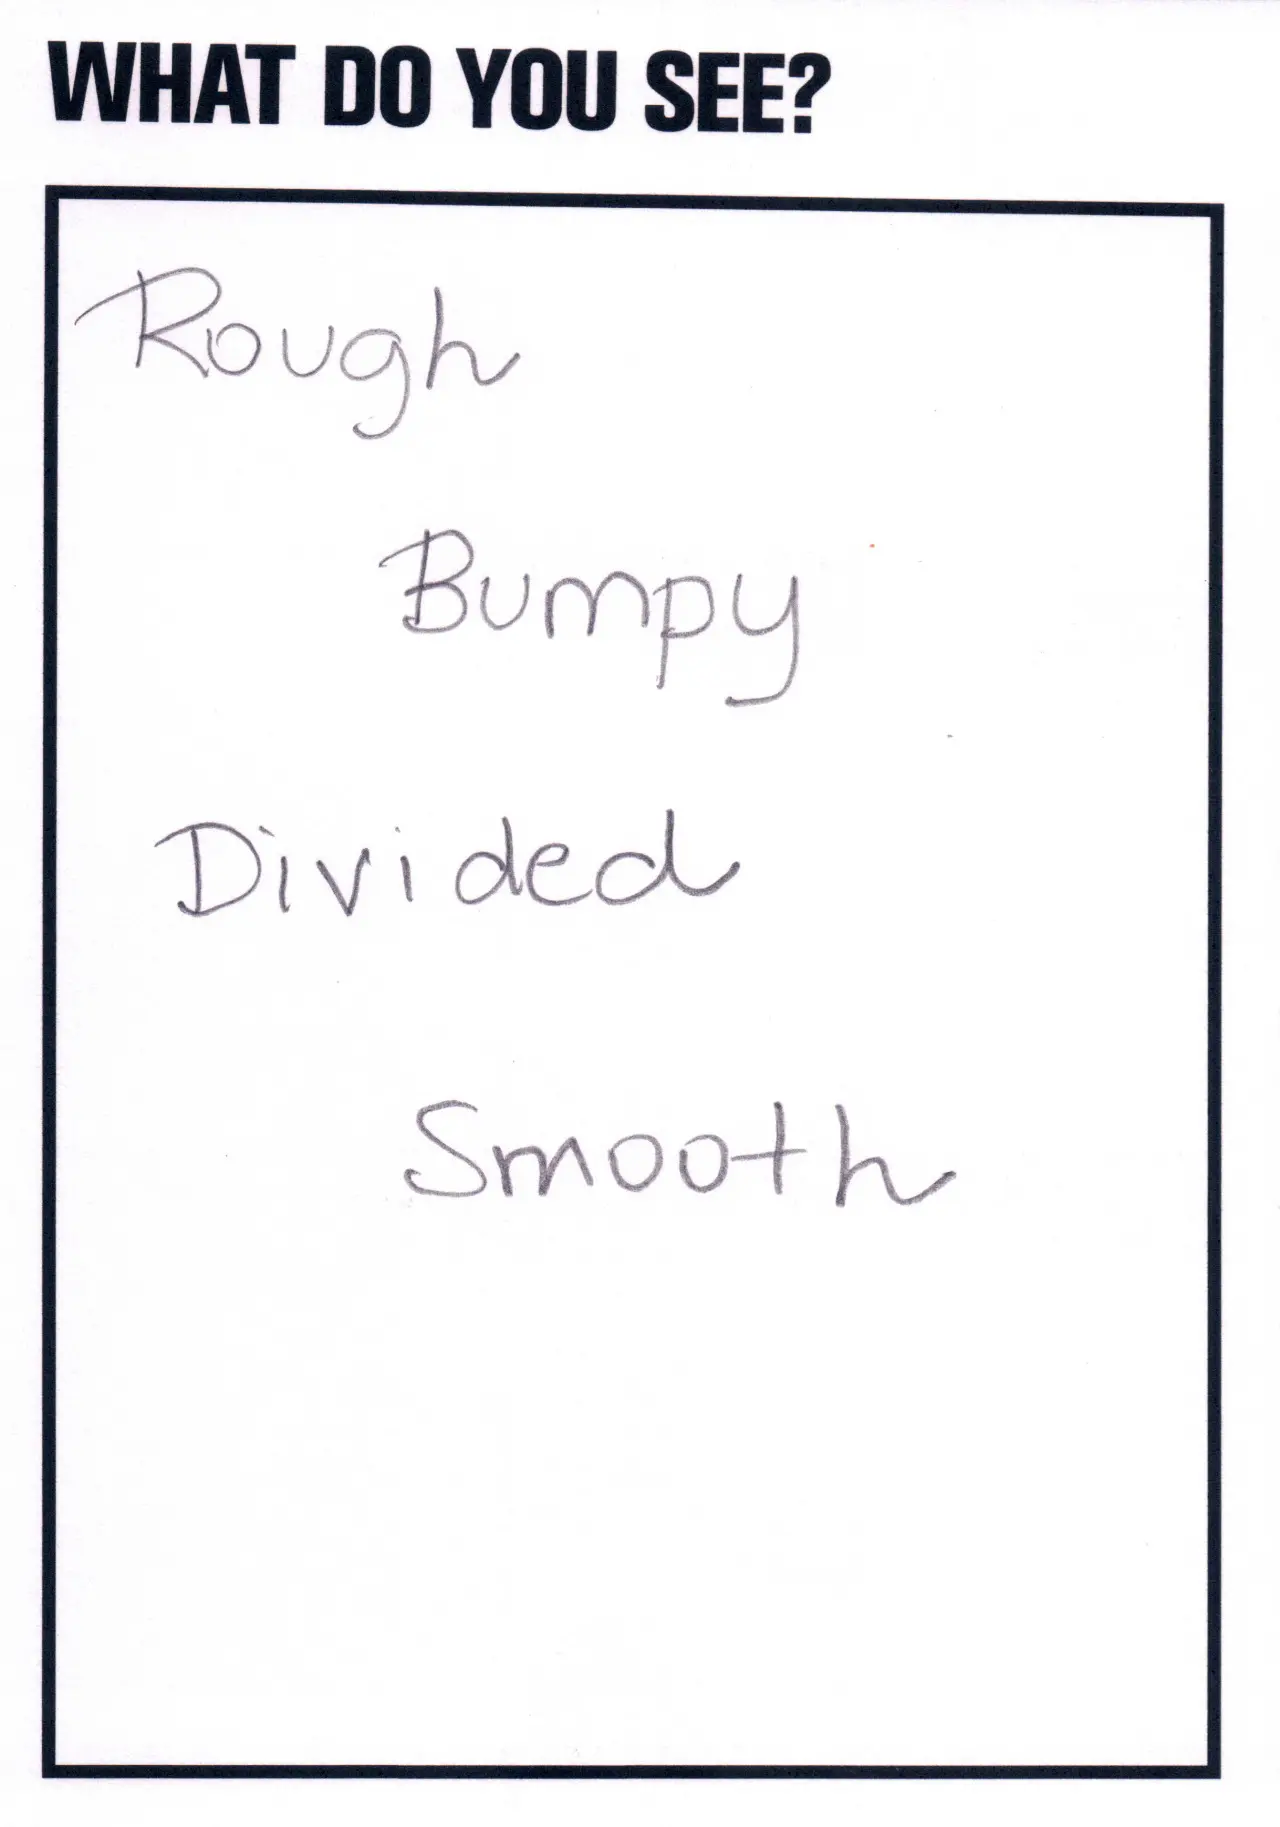 WHAT DO YOU SEE?
Rough
Bumpy
Divided
Smooth